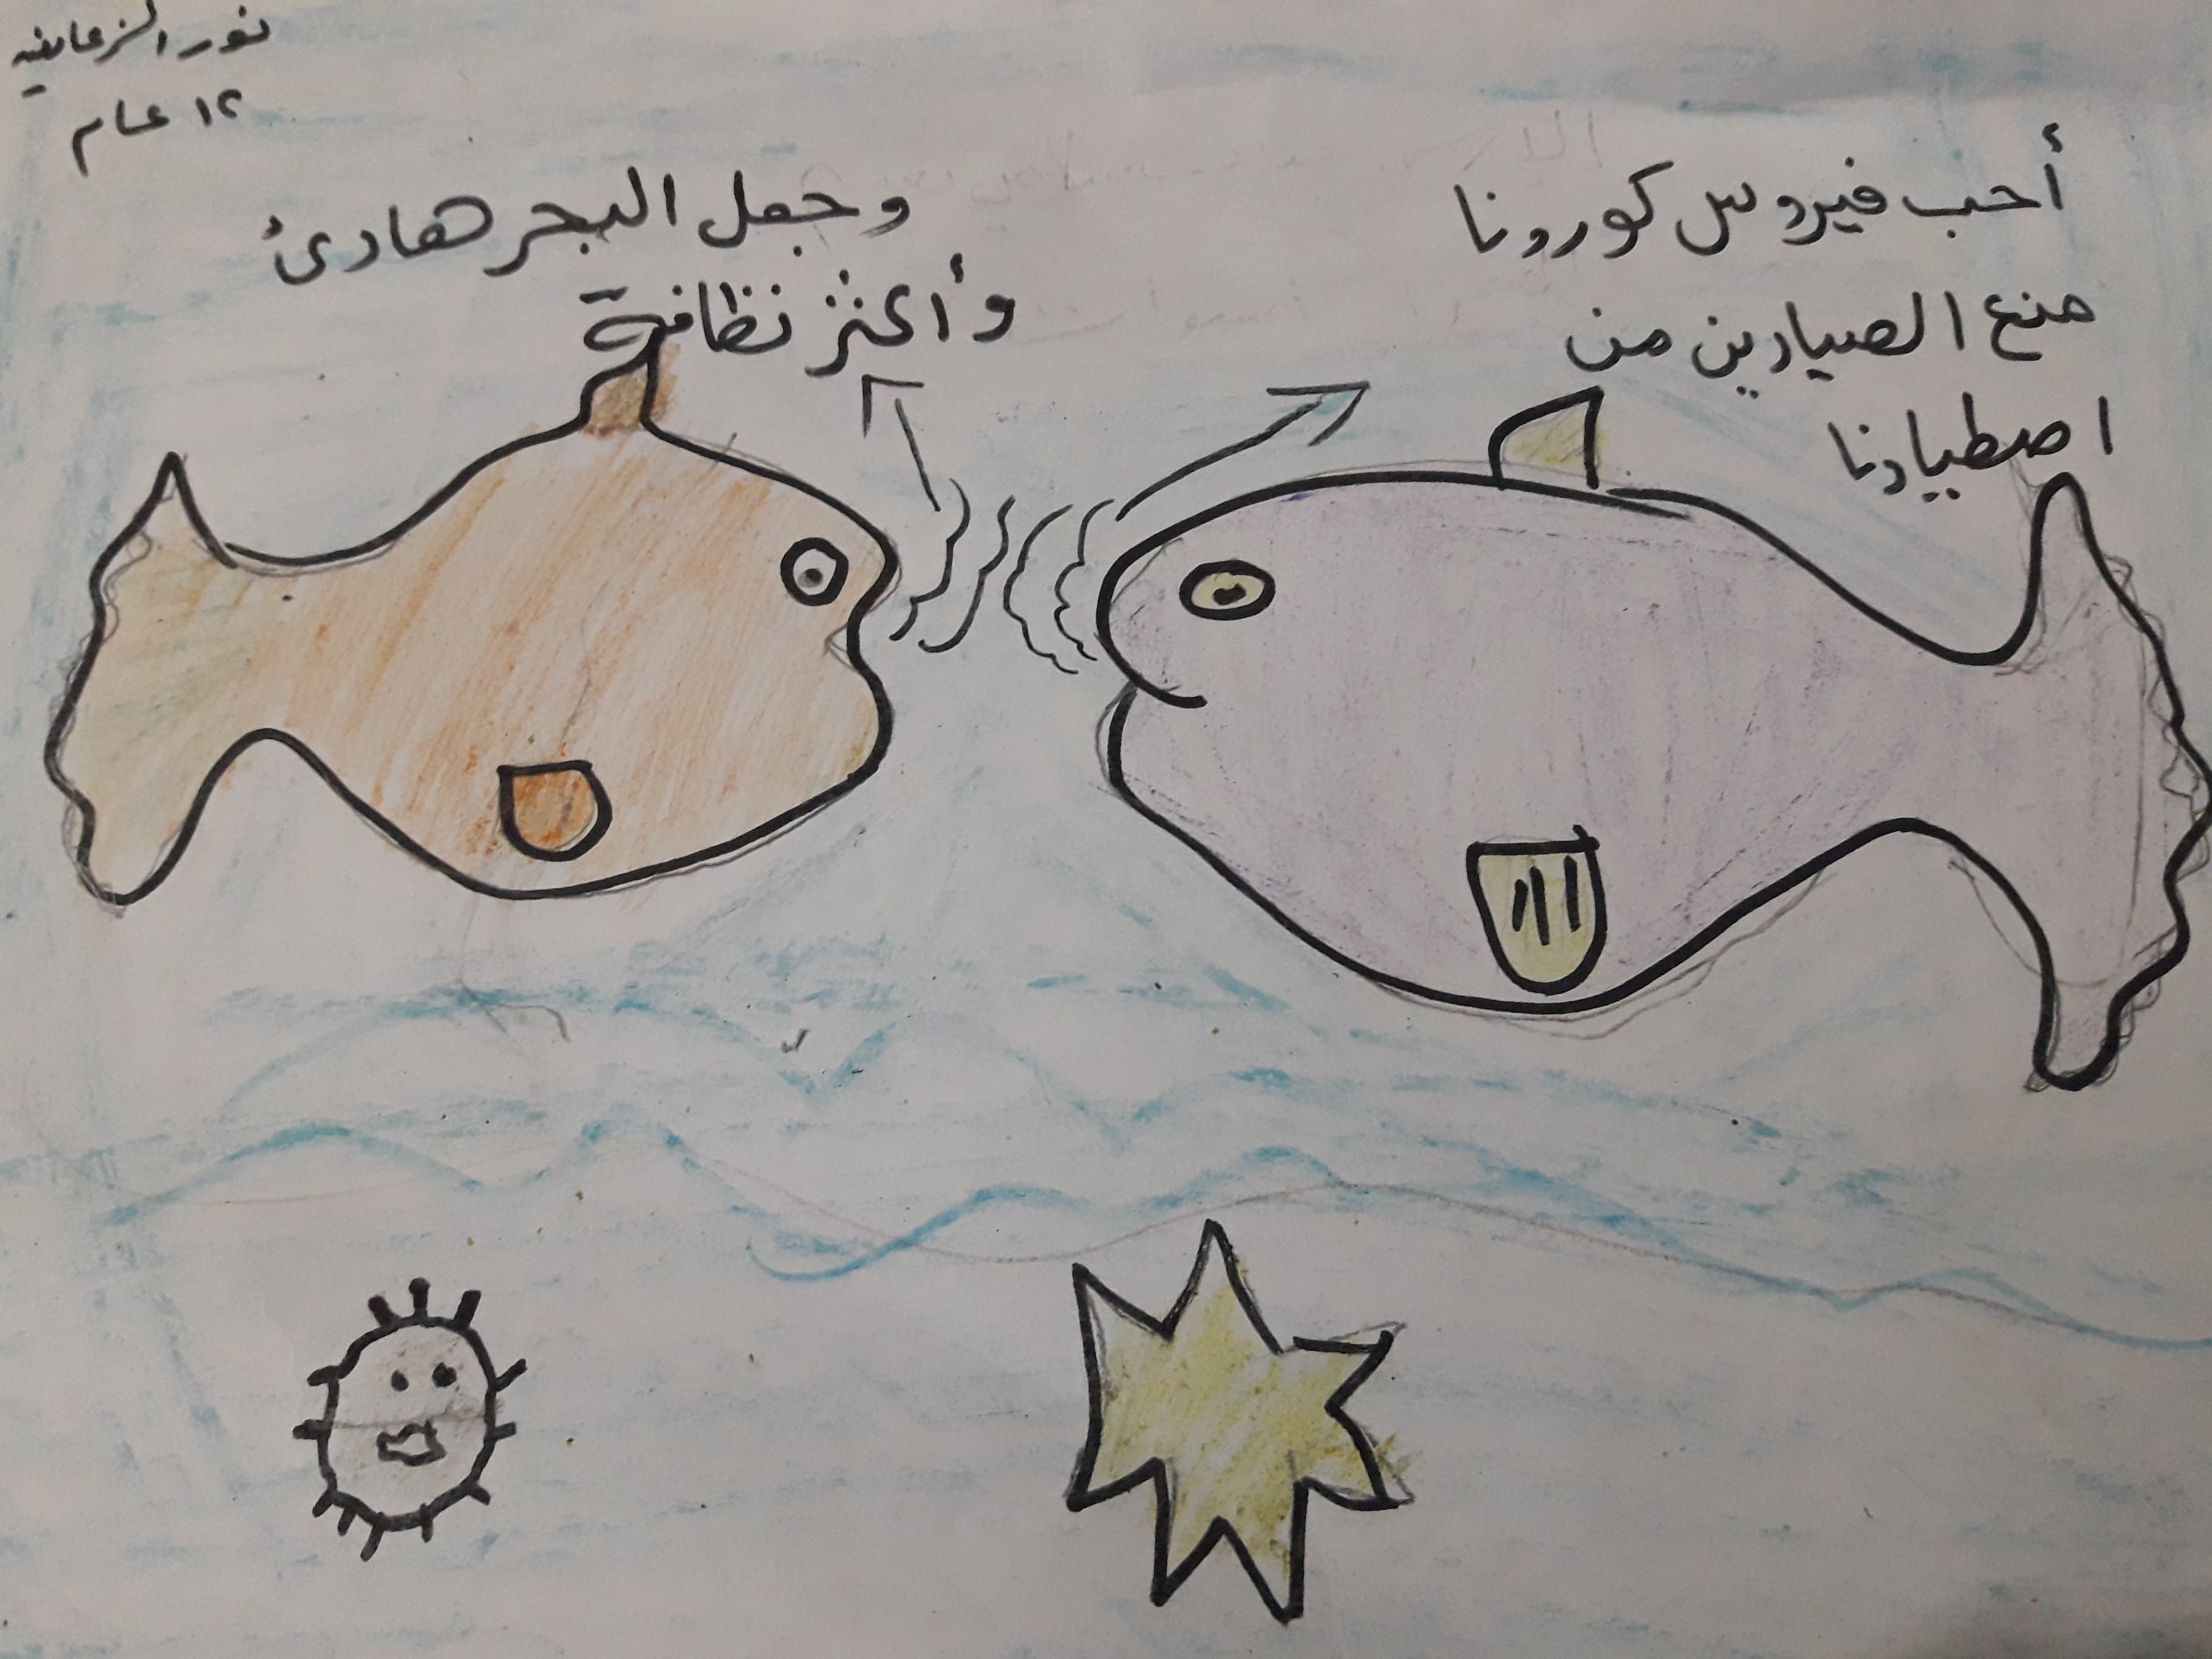 نور الزعانين
١٢ عام
أحب فيروس كورونا
منع الصيادين من
اصطيادنا
وجعل البحر هادئ
وأكثر نظافة